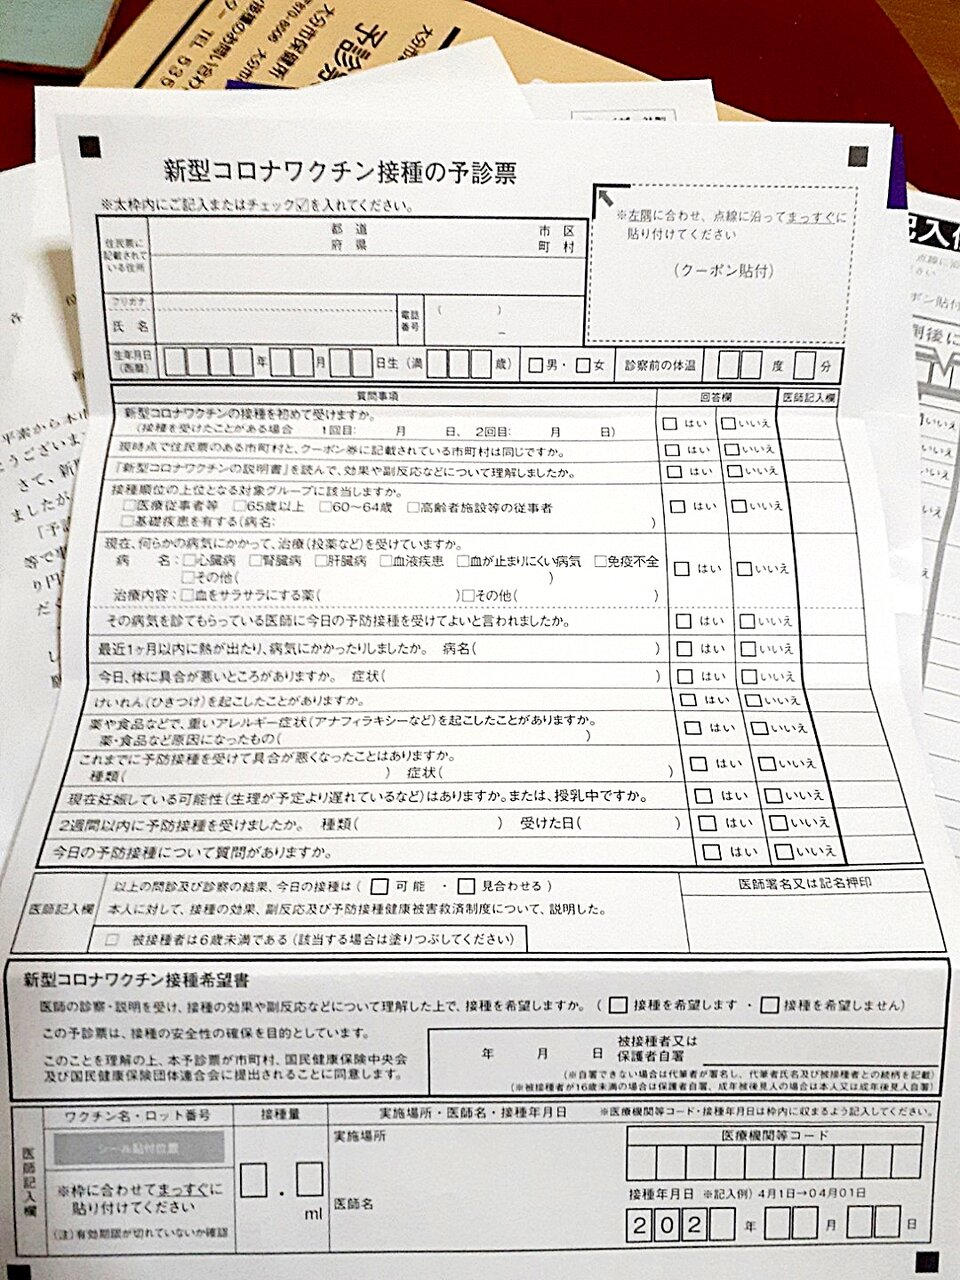 大分市保健所
予診
TEL 535
新型コロナワクチン接種の予診票
※太枠内にご記入またはチェック☑を入れてください。
住民票に
記載されて
いる住所
都 道
府 県
市 区
町 村
フリガナ
氏 名
電話
番号
( )
－
※左隅に合わせ、点線に沿ってまっすぐに
貼り付けてください
(クーポン貼付)
生年月日
(西暦)
□□□□年□□月□□日生 (満□□□歳) □男・□女 診察前の体温 □□度□分
質問事項 回答欄 医師記入欄
新型コロナワクチンの接種を初めて受けますか。
(接種を受けたことがある場合 1回目: 月 日、2回目: 月 日) □はい □いいえ
現時点で住民票のある市町村と、クーポン券に記載されている市町村は同じですか。 □はい □いいえ
『新型コロナワクチンの説明書』を読んで、効果や副反応などについて理解しましたか。 □はい □いいえ
接種順位の上位となる対象グループに該当しますか。
□医療従事者等 □65歳以上 □60～64歳 □高齢者施設等の従事者 □はい □いいえ
□基礎疾患を有する(病名: )
現在、何らかの病気にかかって、治療(投薬など)を受けていますか。
病 名:□心臓病 □腎臓病 □肝臓病 □血液疾患 □血が止まりにくい病気 □免疫不全 □はい □いいえ
□その他( )
治療内容:□血をサラサラにする薬( )□その他( )
その病気を診てもらっている医師に今日の予防接種を受けてよいと言われましたか。 □はい □いいえ
最近1ヶ月以内に熱が出たり、病気にかかったりしましたか。 病名( ) □はい □いいえ
今日、体に具合が悪いところがありますか。 症状( ) □はい □いいえ
けいれん(ひきつけ)を起こしたことがありますか。 □はい □いいえ
薬や食品などで、重いアレルギー症状(アナフィラキシーなど)を起こしたことがありますか。
薬・食品など原因になったもの( ) □はい □いいえ
これまでに予防接種を受けて具合が悪くなったことはありますか。
種類( ) 症状( ) □はい □いいえ
現在妊娠している可能性(生理が予定より遅れているなど)はありますか。または、授乳中ですか。 □はい □いいえ
2週間以内に予防接種を受けましたか。 種類( ) 受けた日( ) □はい □いいえ
今日の予防接種について質問がありますか。 □はい □いいえ
医師記入欄
以上の問診及び診察の結果、今日の接種は (□可能 ・ □見合わせる)
本人に対して、接種の効果、副反応及び予防接種健康被害救済制度について、説明した。
□ 被接種者は6歳未満である (該当する場合は塗りつぶしてください)
医師署名又は記名押印
新型コロナワクチン接種希望書
医師の診察・説明を受け、接種の効果や副反応などについて理解した上で、接種を希望しますか。 (□接種を希望します ・ □接種を希望しません)
この予診票は、接種の安全性の確保を目的としています。
このことを理解の上、本予診票が市町村、国民健康保険中央会
及び国民健康保険団体連合会に提出されることに同意します。
年 月 日
被接種者又は
保護者自署
(※自署できない場合は代筆者が署名し、代筆者氏名及び被接種者との続柄を記載)
(※被接種者が16歳未満の場合は保護者自署、成年被後見人の場合は本人又は成年後見人自署)
医師記入欄
ワクチン名・ロット番号
シール貼付位置
※枠に合わせてまっすぐに
貼り付けてください
(注)有効期限が切れていないか確認
接種量
□.□
ml
実施場所・医師名・接種年月日 ※医療機関等コード・接種年月日は枠内に収まるよう記入してください。
実施場所
医師名
医療機関等コード
接種年月日 ※記入例) 4月1日→04月01日
202□年□□月□□日